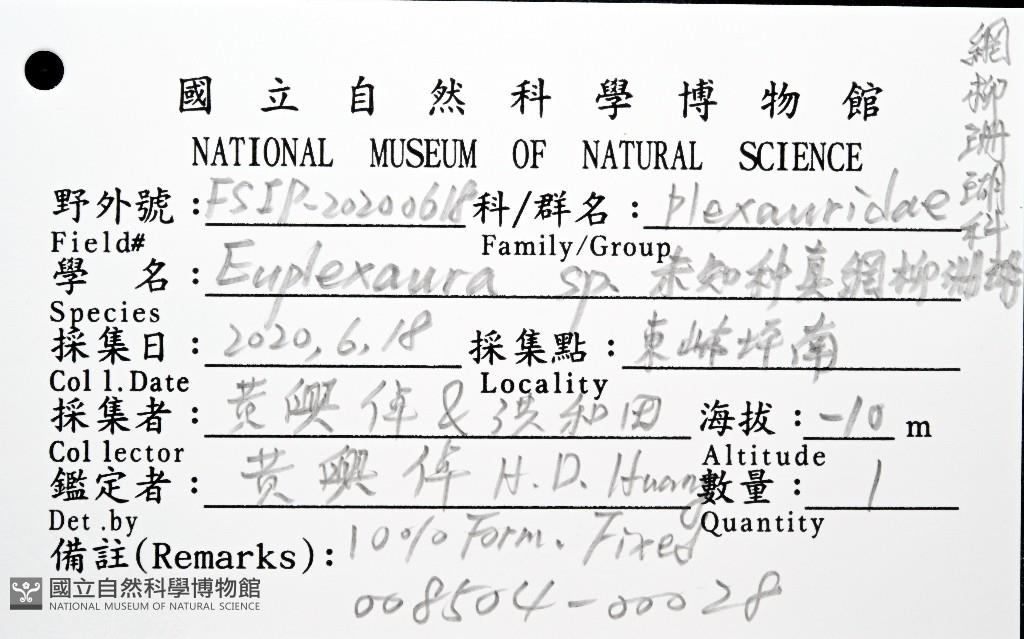 國立自然科學博物館
NATIONAL MUSEUM OF NATURAL SCIENCE
網柳珊瑚科
野外號：FSIP-20200618 科/群名：Plexauridae
Field# Family/Group
學名：Euplexaura sp. 未知种真網柳珊瑚
Species
採集日：2020,6,18 採集點：東 坪南
Coll.Date Locality
採集者：黃興倬 & 洪和田 海拔：-10 m
Collector Altitude
鑑定者：黃興倬 H.D. Huang 數量：1
Det.by Quantity
備註(Remarks)：10% Form. Fixed
008504-00028
國立自然科學博物館
NATIONAL MUSEUM OF NATURAL SCIENCE